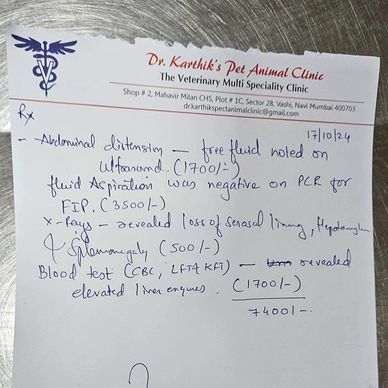 Dr. Karthik's Pet Animal Clinic
The Veterinary Multi Speciality Clinic
Shop # 2, Mahavir Milan CHS, Plot # 1C, Sector 28, Vashi, Navi Mumbai 400703
dr.karthikspectanimalclinic@gmail.com
Rx
17/10/24
- Abdominal distension — free fluid noted on
Ultrasound (1700/-)
fluid Aspiration was negative on PCR for
FIP. (3500/-)
X-Rays - revealed loss of serosal lining,
& Splenomegaly (500/-)
Blood test (CBC, LFT & KFT) — revealed
elevated liver enzymes. (1700/-)
7400/-